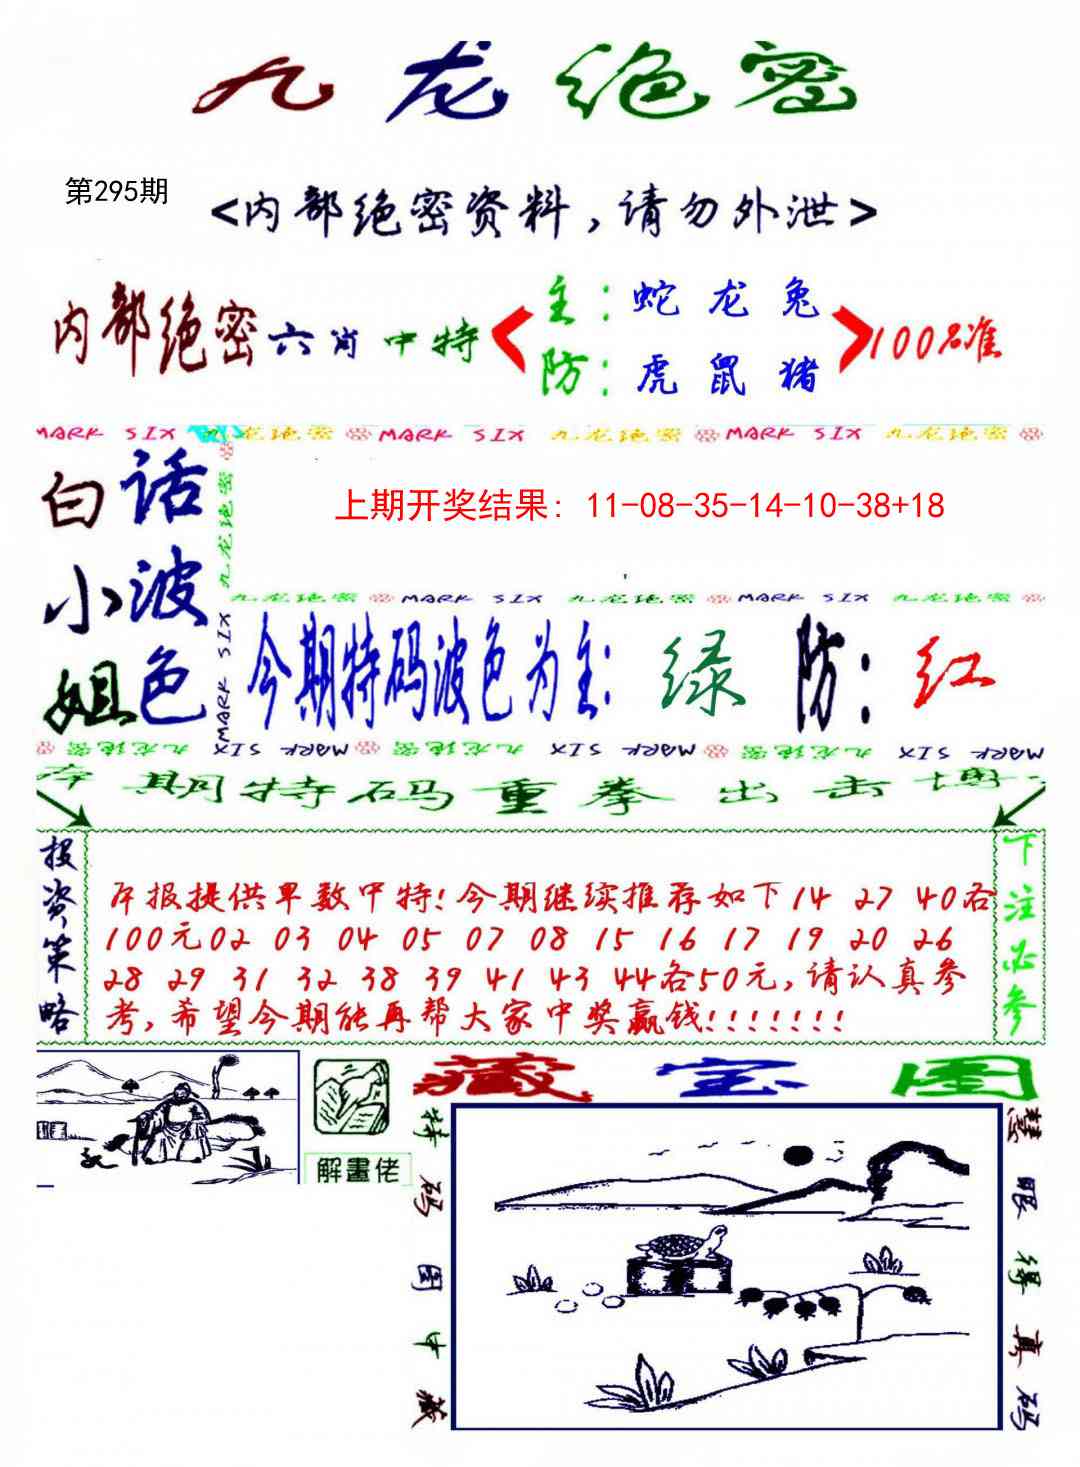 九龙绝密
第295期
<内部绝密资料，请勿外泄>
内部绝密六肖中特
主：蛇 龙 兔
防：虎 鼠 猪
100%准
MARK SIX 九龙绝密 MARK SIX 九龙绝密 MARK SIX 九龙绝密
白话
小波
姐色
九龙绝密
MARK SIX
上期开奖结果: 11-08-35-14-10-38+18
九龙绝密 MARK SIX 九龙绝密 MARK SIX 九龙绝密
今期特码波色为主: 绿 防: 红
九龙绝密 MARK SIX 九龙绝密 MARK SIX 九龙绝密 MARK SIX
本期特码重拳出击博
投资策略
本报提供单数中特!今期继续推荐如下14 27 40各
100元02 03 04 05 07 08 15 16 17 19 20 26
28 29 31 32 38 39 41 43 44各50元,请认真参
考,希望今期能再帮大家中奖赢钱!!!!!!!
下注必参
解畫佬
藏宝图
特码图中藏
慧眼得真码